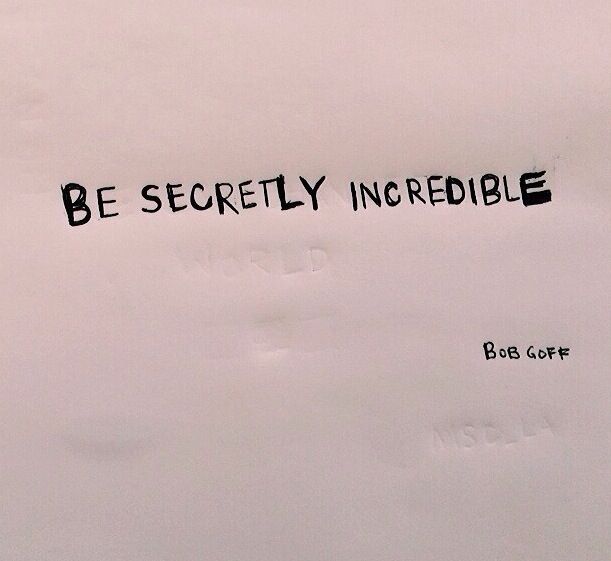 BE SECRETLY INCREDIBLE
WORLD
BOB GOFF